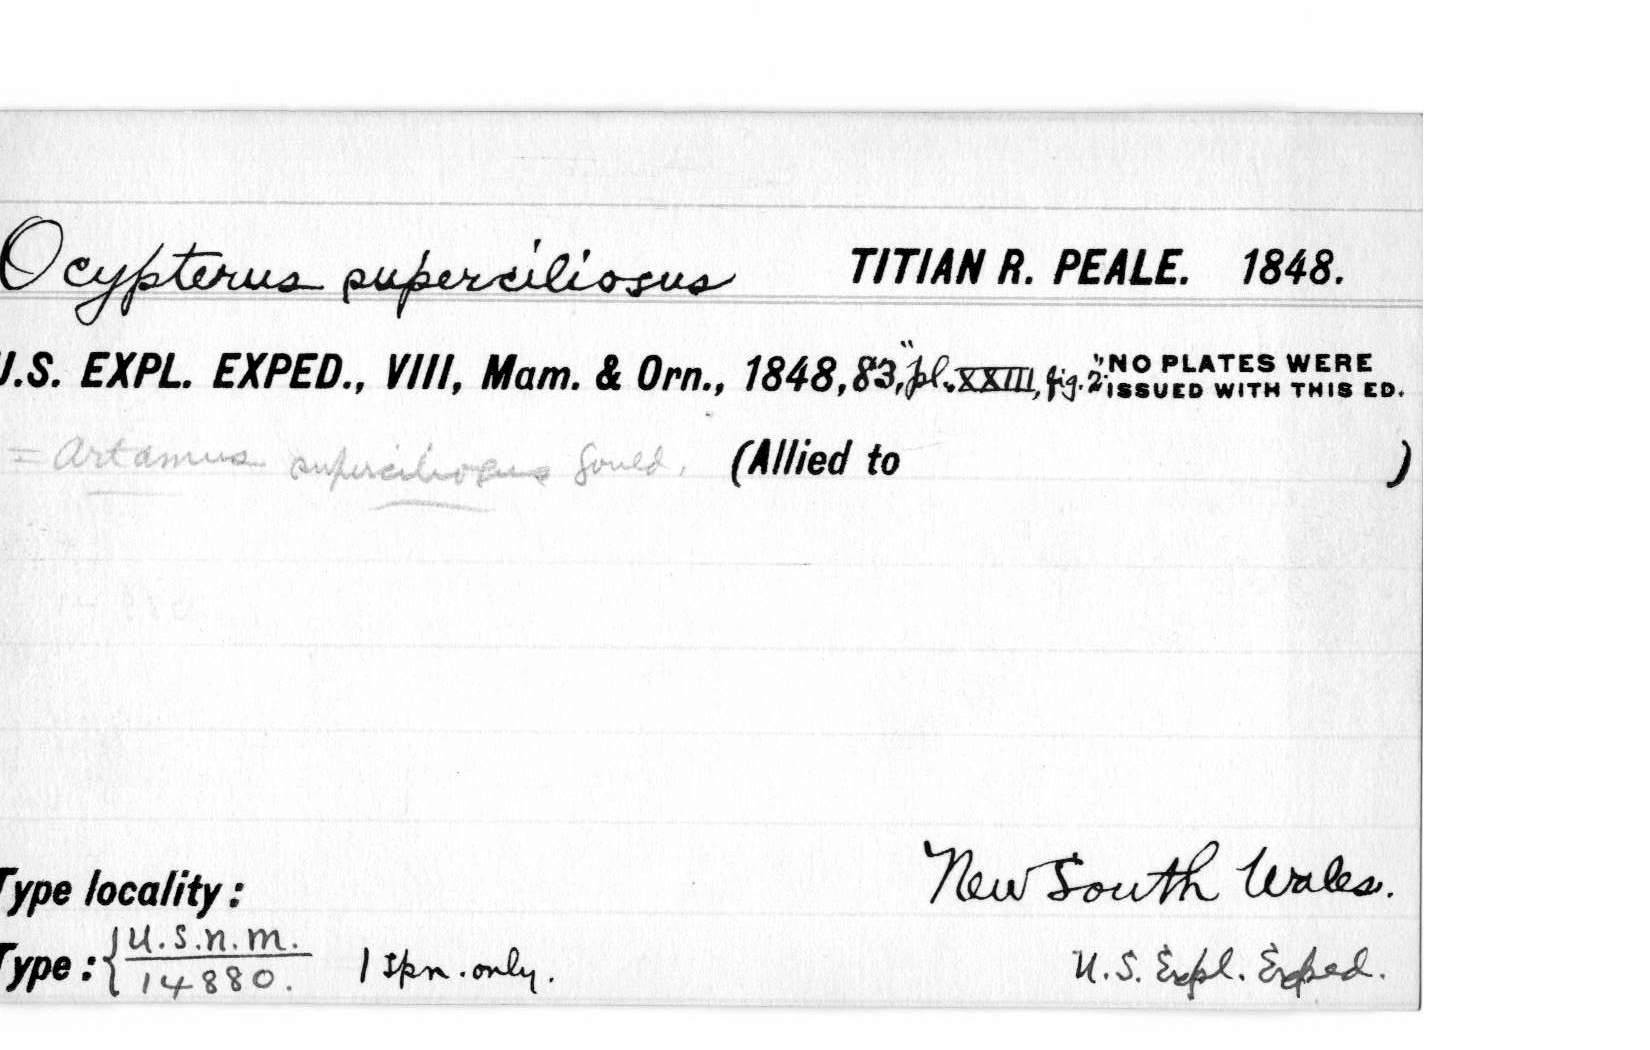 Ocypterus superciliosus TITIAN R. PEALE. 1848.
U.S. EXPL. EXPED., VIII, Mam. & Orn., 1848, 83, "pl. XXIII, fig. 2." NO PLATES WERE
ISSUED WITH THIS ED.
= Artamus superciliosus Gould. (Allied to )
14880
Type locality: New South Wales.
Type: { U.S.N.M. 1 spn. only. U.S. Expl. Exped.
14880.